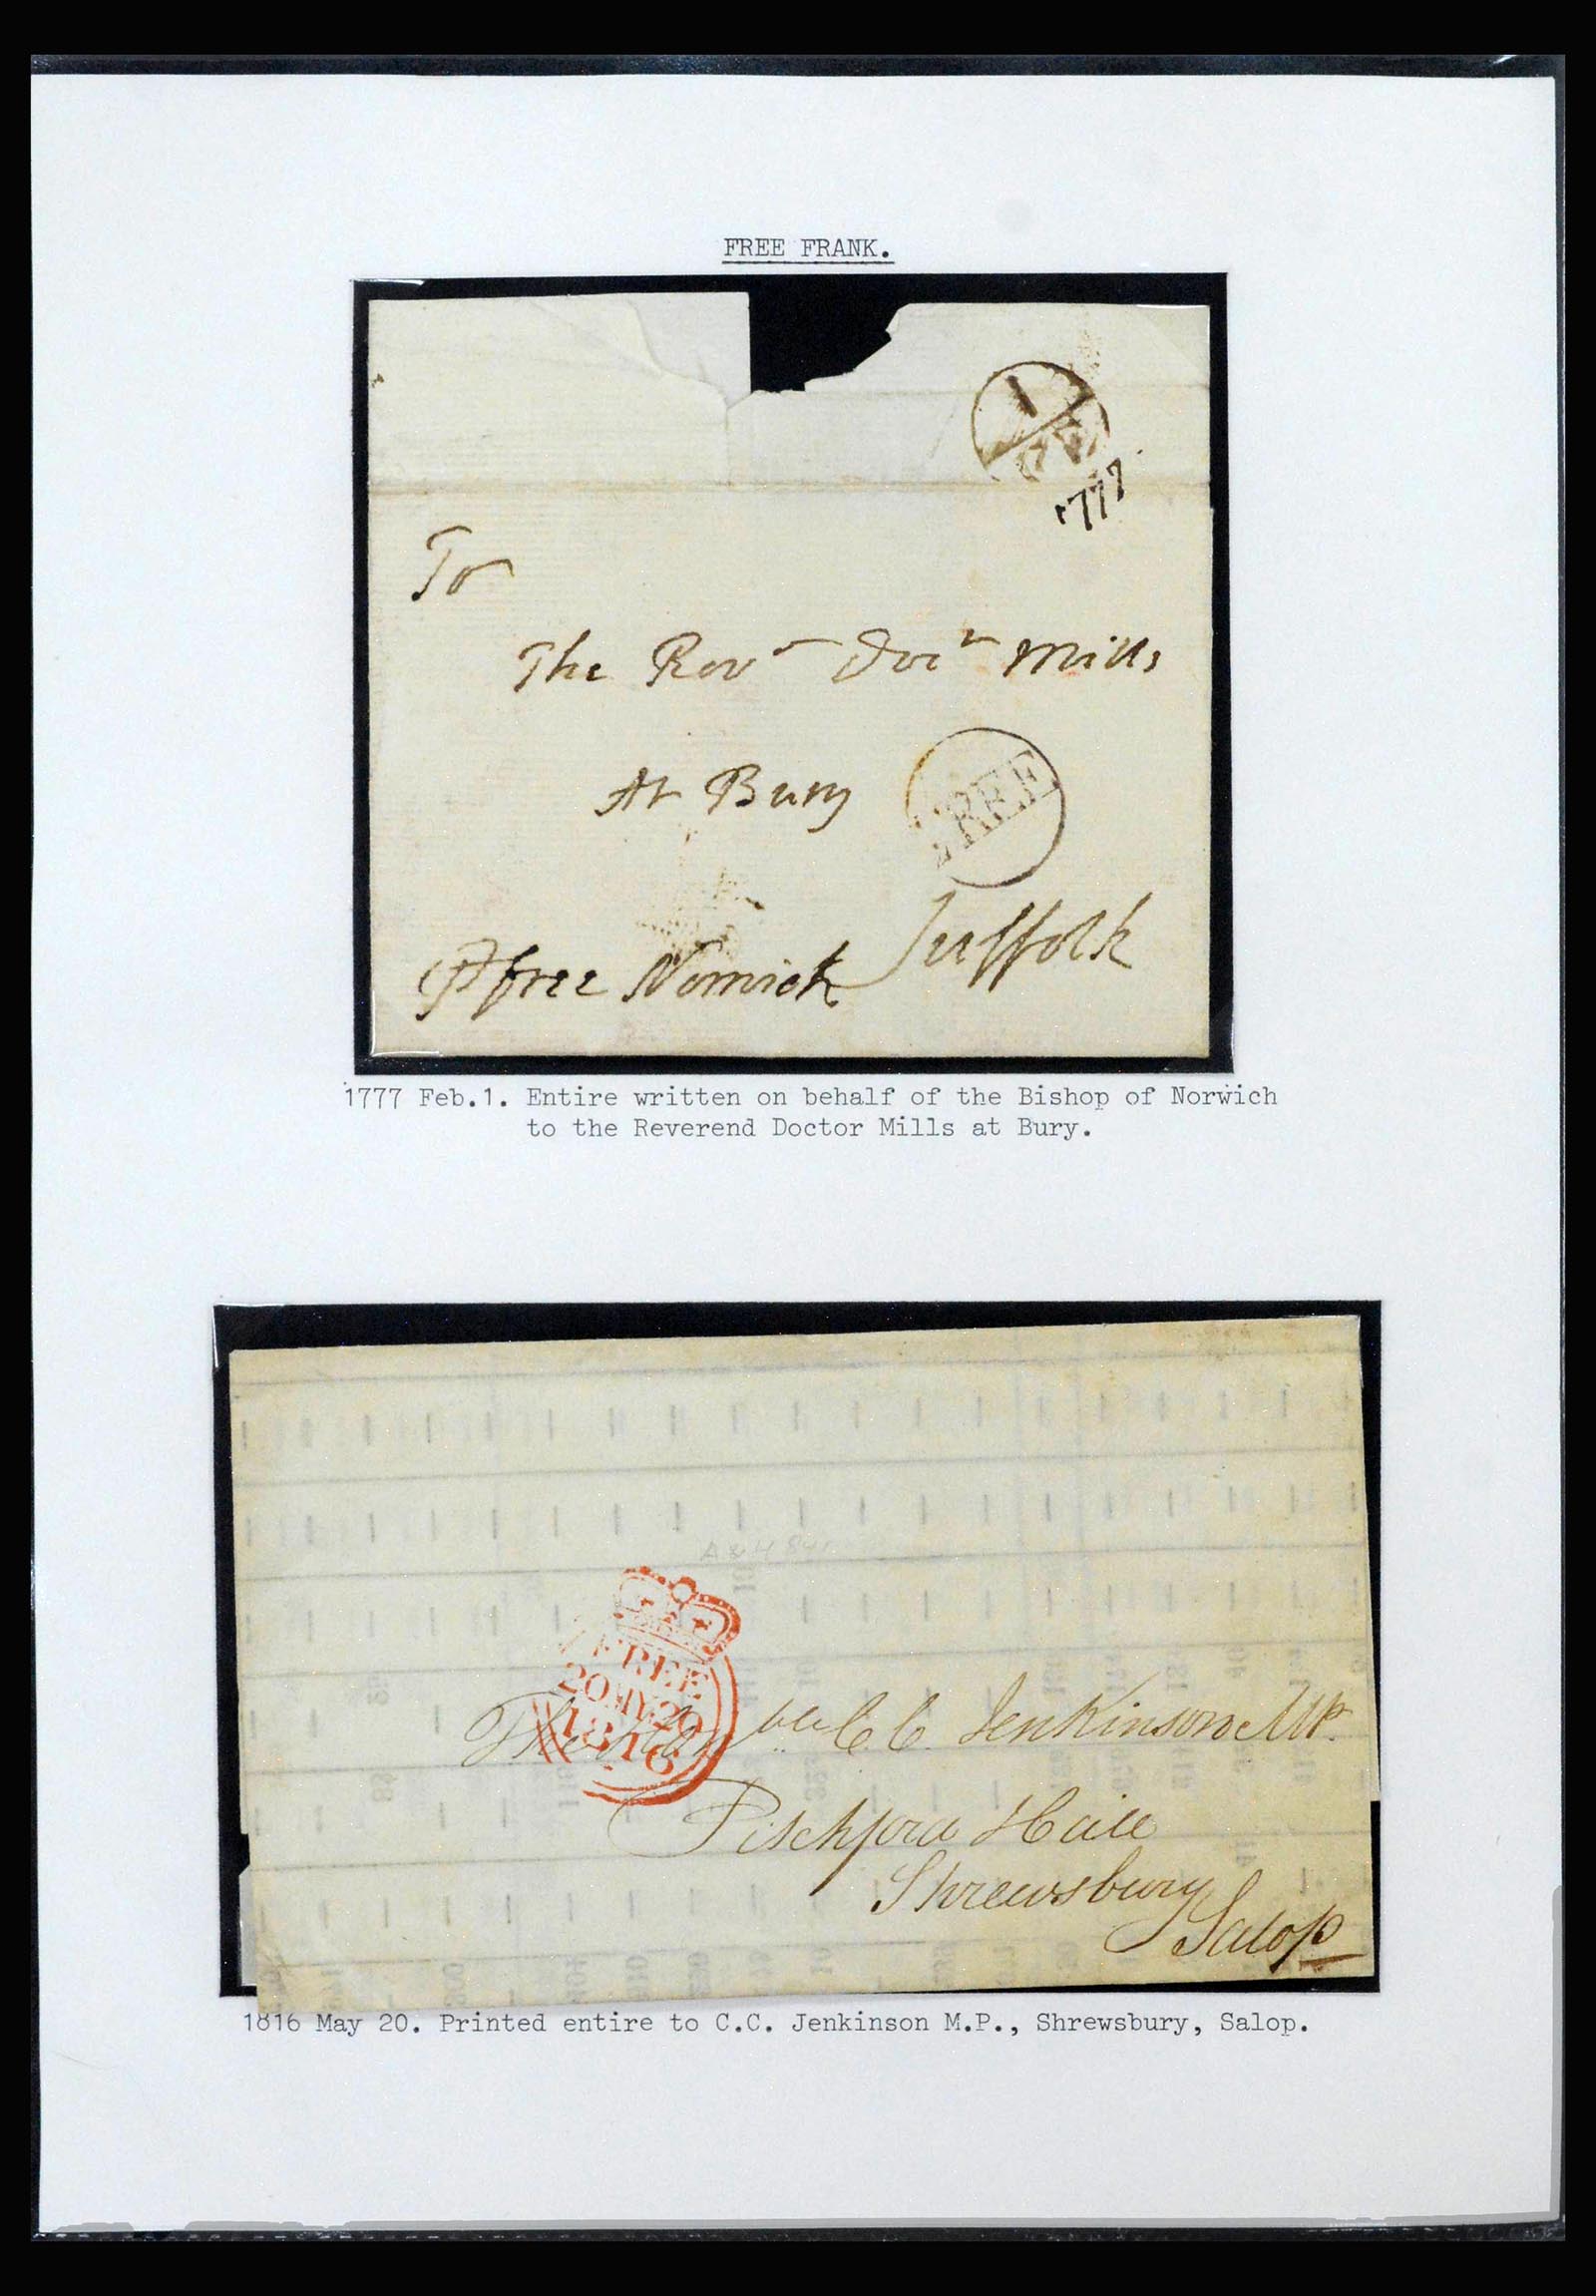 FREE FRANK.
1
FE
1777
To
The Revd Docr Mills
At Bury
FREE
Suffolk
free Norwich
1777 Feb.1. Entire written on behalf of the Bishop of Norwich
to the Reverend Doctor Mills at Bury.
FREE
20MY20
1816
The Honble C. C. Jenkinson MP.
Pitchford Hall
Shrewsbury
Salop
1816 May 20. Printed entire to C.C. Jenkinson M.P., Shrewsbury, Salop.